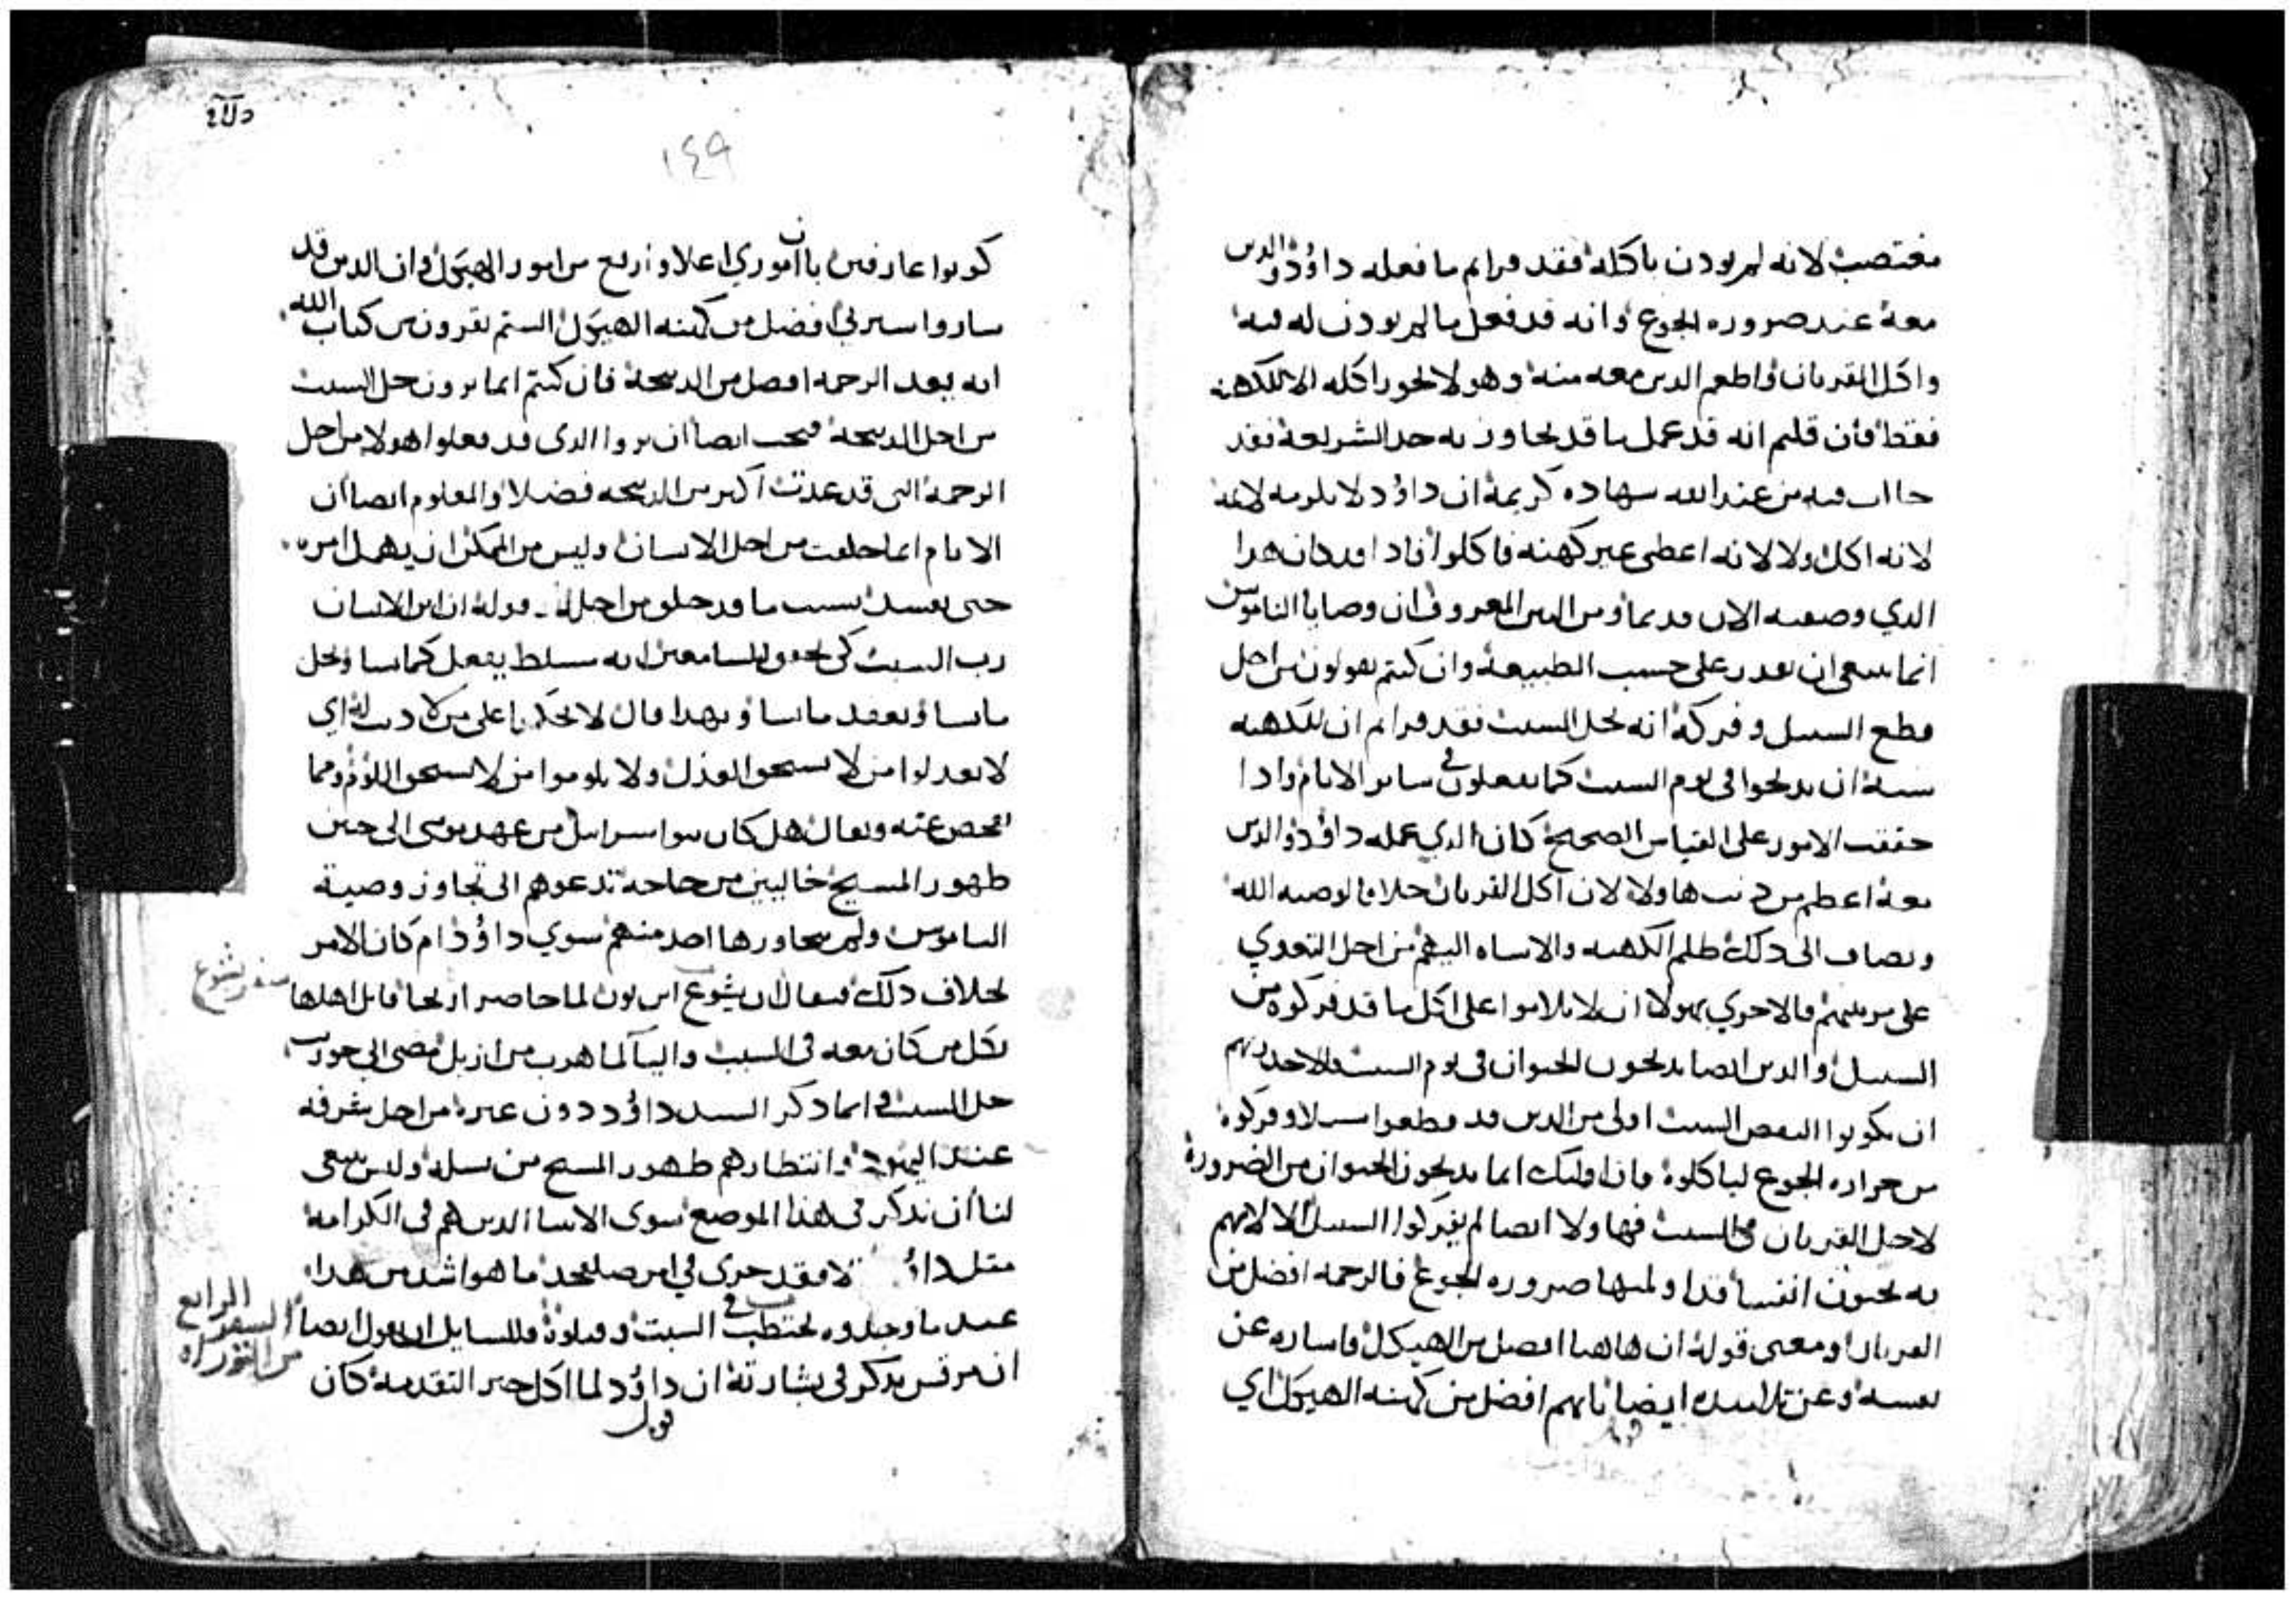 مغتصب لانه لم يودن باكله فقد قراتم ما فعله داوٗد والدين
معه عند ضروره الجوع وانه قد فعل ما لم يودن له فيه
واكل القربان واطعم الدين معه منه وهو لا يجوز اكله الا للكهنه
فقط فان قلتم انه قد عمل ما قد تجاوز به حد الشريعة فقد
فيه من عند الله شهاده كريمة ان داوٗد لا يلومه لايمه
لانه اكل ولا لانه اعطى غير كهنه فاكلوا فادا قد كان هدا
الدي وصفته الان قديما ومن البين المعروف ان وصايا الناموس
انما ينبغي ان تقدر على حسب الطبيعة وان كنتم تقولون من اجل
قطع السنبل وفركه انه يحل السبت فقد قراتم ان للكهنه
سنة ان يدبحوا في يوم السبت كما يفعلون في ساير الايام وادا
حققت الامور على القياس الصحيح كان الدي عمله داوٗد والدين
معه اعظم من دنب هاولا لان اكل القربان خلافا لوصيه الله
ويضاف الى دلك ظلم الكهنه والاساه اليهم من اجل التعدي
على مرتبتهم فالاحري بهولا ان لا يلاموا على اكل ما قد فركوه من
السنبل والدين ايضا يدبحون الحيوان في يوم السبت فالاجدر بهم
ان يكونوا السبت اولى من الدين قد قطعوا سنبلا وفركوه
من حراره الجوع لياكلوه فان اوليك انما يدبحون الحيوان من الضرورة
لاجل القربان في السبت فهاولا ايضا لم يفركوا السنبل الا لانهم
به يحيون انفسا قد اولمتها ضروره الجوع فالرحمه افضل من
القربان ومعنى قوله ان هاهنا افضل من الهيكل فاشاره عن
نفسه وعن تلاميده ايضا بانهم افضل من كهنه الهيكل اي
١٤٩
كونوا عارفين بان اموري اعلا وارفع من امور الهيكل وان الدين قد
ساروا سيرتي افضل من كهنه الهيكل الستم تقرون من كتاب الله
انه يعد الرحمه افضل من الدبيحة فان كنتم انما ترون حل السبت
من اجل الدبيحة فيجب ايضا ان تروا الدي قد فعلوا هولا من اجل
الرحمة التى قد عدت اكبر من الدبيحه فضلا والمعلوم ايضا ان
الايام انما خلقت من اجل الانسان وليس من الممكن ان يهمل امره
حتى يفسد بسبب ما قد خلق من اجله وقوله ان ابن الانسان
رب السبت كي يحقق للسامعين انه مسلط يفعل كما يشا ويحل
ما يشا ويعقد ما يشا وبهدا قال لا تحكموا على من لا دنب له اي
لا تعدلوا من لا يستحق العدل ولا تلوموا من لا يستحق اللوم ومما
يفحص عنه ويقال هل كان بنوا اسراييل من عهد موسى الى حين
ظهور المسيح خاليين من حاجه تدعوهم الى تجاوز وصية
الناموس ولم يتجاوزها احد منهم سوي داوٗد ام كان الامر
بخلاف دلك فيقال ان يشوع ابن نون لما حاصر اريحا قاتل اهلها
سفر يشوع
بكل من كان معه في السبت واليا لما هرب من ازبل مضى الى حوريب
حل السبت وانما دكر السيد داوٗد دون غيره من اجل شرفه
عند اليهود وانتظارهم ظهور المسيح من نسله وليس ينبغى
لنا ان ندكر في هذا الموضع سوى الانبيا الدين هم في الكرامه
مثل داوٗد فقد جرى في امر ما هو اشد من هدا
عند ما وجدوه يحتطب في السبت وقتلوه فللسايل ان يقول ايضا
السفر الرابع
من التوراه
ان مرقس يدكر في بشارته ان داوٗد لما اكل خبز التقدمه كان
قول